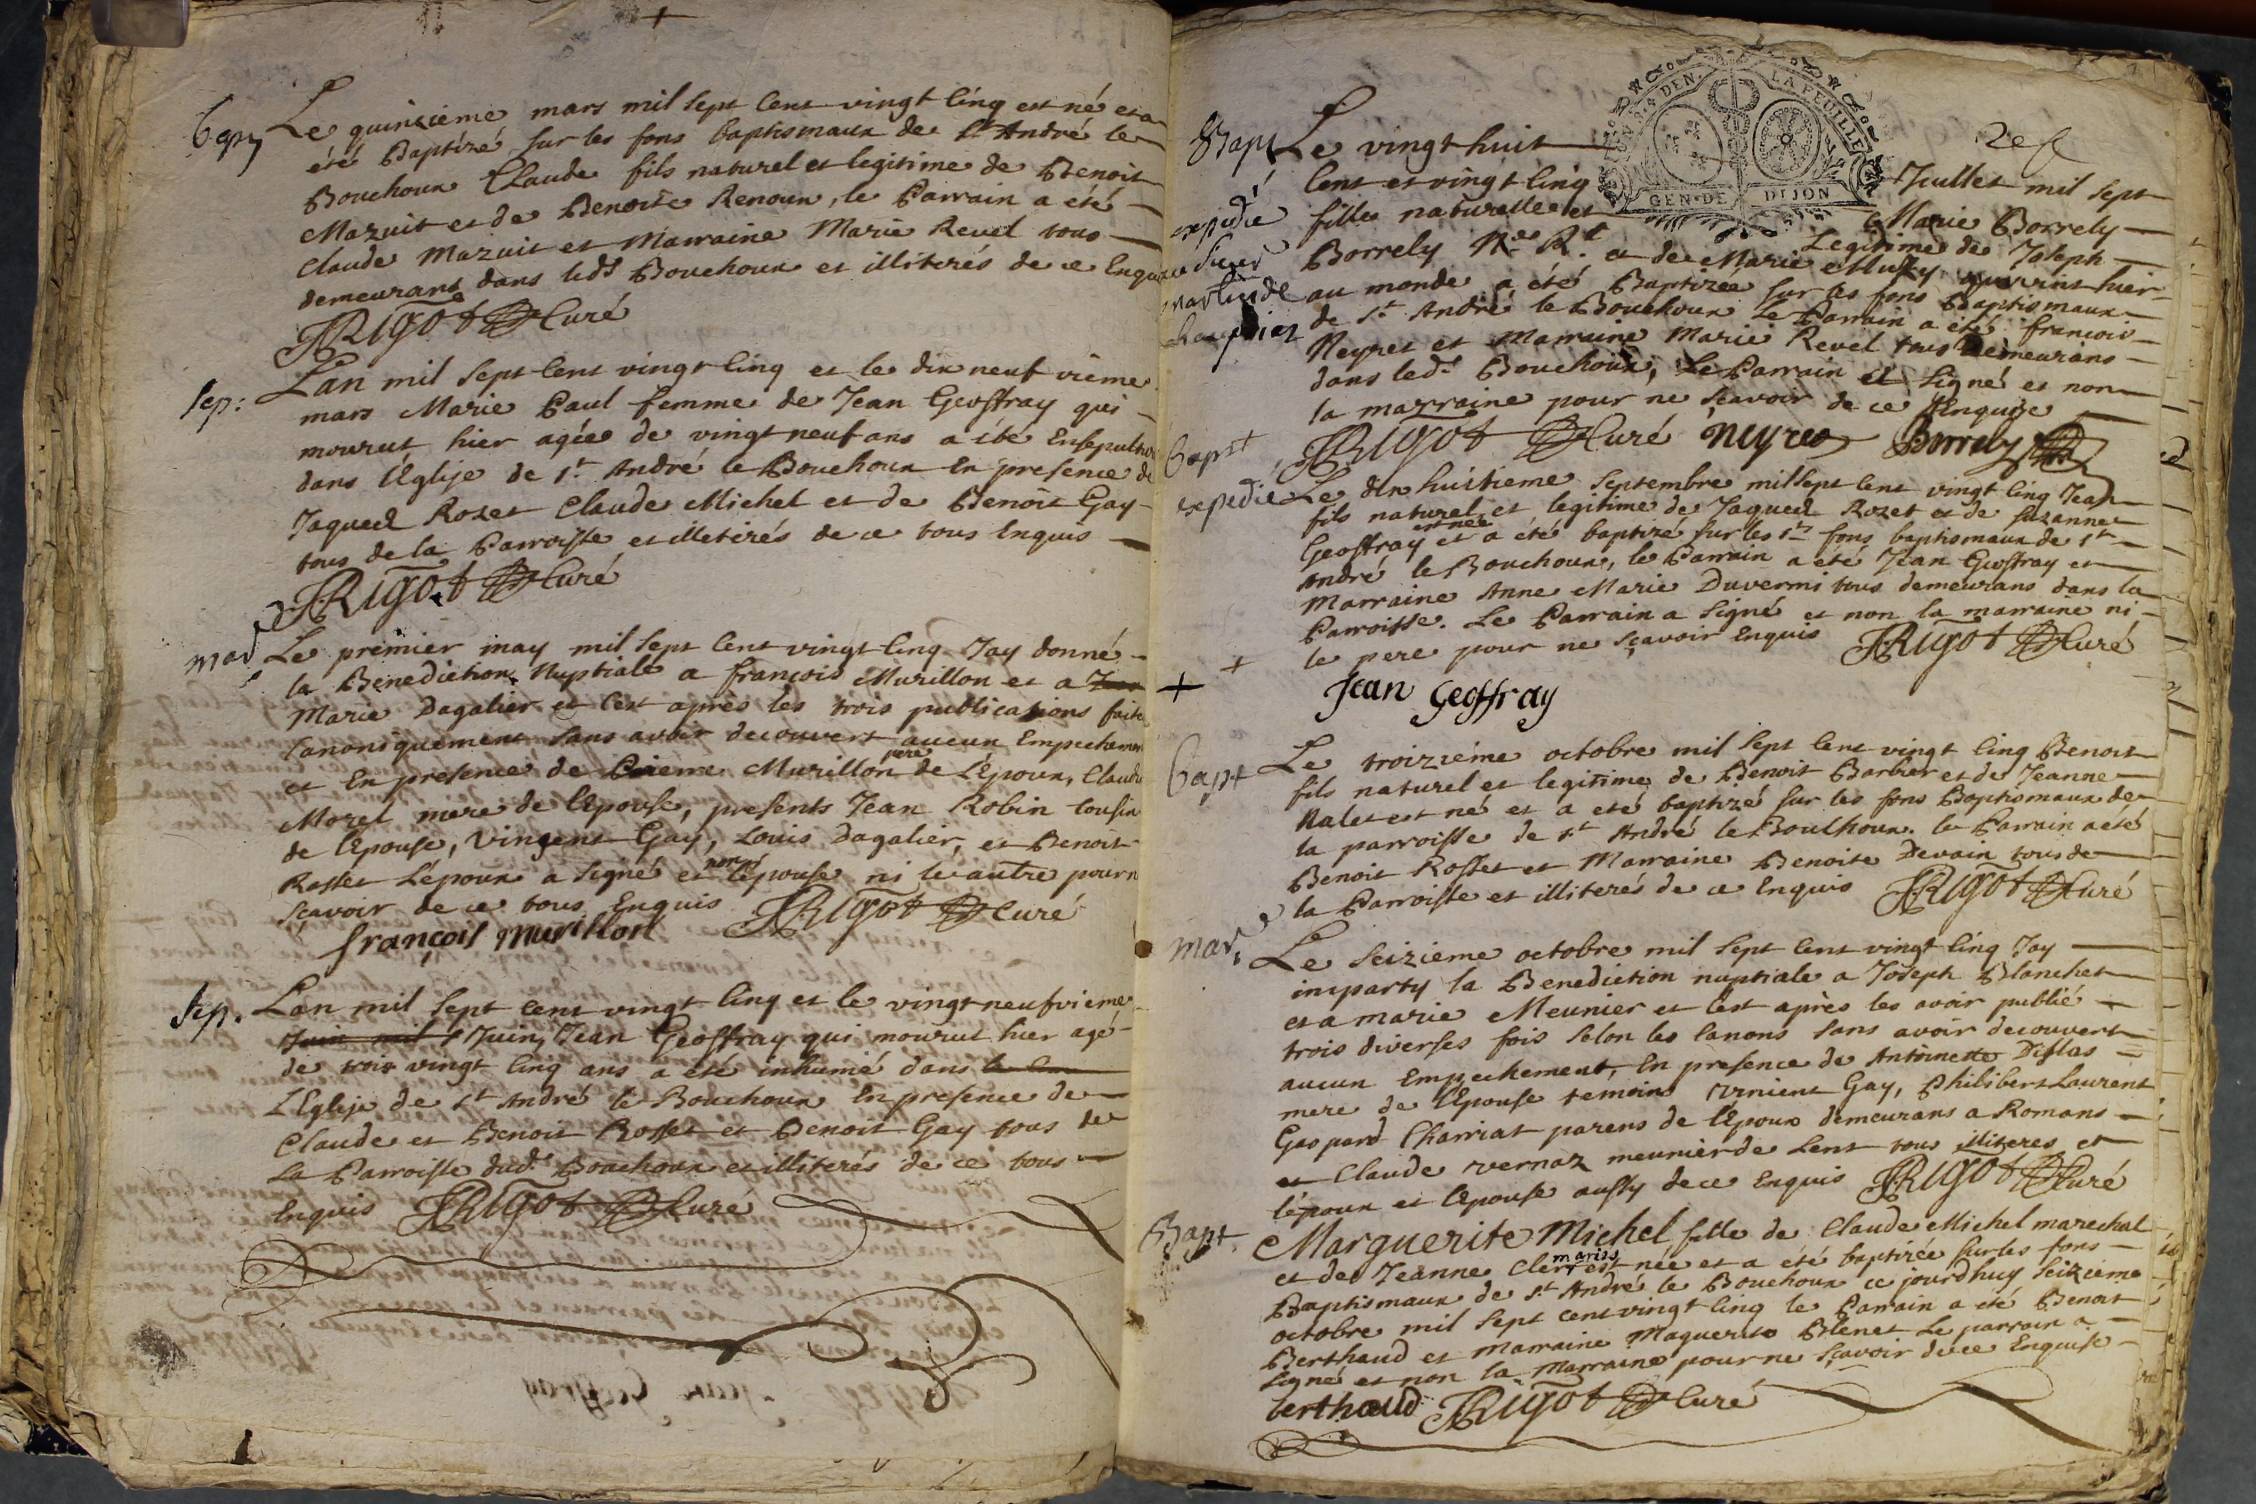 Bapt
Le quinzieme mars mil sept cent vingt cinq est né et a
été Baptizé sur les fons baptismaux de St André le
Bouchoux Claude fils naturel et legitime de Benoit
Mazuit et de Benoite Renoux, le Parrain a été
Claude Mazuit et Marraine Marie Revel tous
demeurans dans ledt Bouchoux et illiterés de ce Enquis
JRIGOT Curé
Sep:
Lan mil sept cent vingt cinq et le dix neuf vieme
mars Marie Paul femme de Jean Geoffray qui
mourut hier agée de vingt neuf ans a été Ensepulturée
dans l'Eglise de St André le Bouchoux En presence de
Jaques Rozet Claude Michel et de Benoit Gay
tous de la Parroisse et illetirés de ce tous Enquis
JRIGOT Curé
Mar
Le premier may mil sept cent vingt cinq Jay donné
la Benediction Nuptiale a françois Murillon et a
Marie Dagalier et c'est après les trois publications faites
canoniquement sans avoir decouvert aucun Empechement
et En presence de Murillon pere de L'Epoux, Claudine
Morel mere de l'Epouse, presents Jean Robin cousin
de l'Epouse, Vingent Gay, Louis Dagalier, et Benoit
Rosset L'époux a signé et non l'épouse ni les autre pour n
sçavoir de ce tous Enquis JRIGOT Curé
françois murillon
Sep.
Lan mil sept cent vingt cinq et le vingt neufvieme
Juin mil Juin, Jean Geoffray qui mourut hier agé
de trois vingt cinq ans a été inhumé dans
L'Eglise de St André le Bouchoux En presence de
Claude et Benoit Rosset et Benoit Gay tous de
La Parroisse dudt Bouchoux et illiterés de ce tous
Enquis JRIGOT Curé
GEN. DE DIJON
LA FEUILLE
Bapt
expedié
au sieur
martin de
Le vingt huit Juillet mil sept
cent et vingt cinq Marie Borrely
fille naturelle et Legitime de Joseph
Borrely Nre Rl et de Marie Mussy qui vint hier
au monde a été Baptizée sur les fons Baptismaux
de St André le Bouchoux Le Parrain a été françois
Neyret et Marraine Marie Revel tous demeurans
dans ledt Bouchoux, Le Parrain a signé et non
la marraine pour ne sçavoir de ce Enquise
JRIGOT Curé Neyret Borrely
Bapt
expedié
Le dix huitieme Septembre mil sept cent vingt cinq Jean
fils naturel et legitime de Jaques Rozet et de Suzanne
Geoffray est née et a été baptizé sur les sts fons baptismaux de St
André le Bouchoux, le Parrain a été Jean Geoffray et
Marraine Anne Marie Duverni tous demeurans dans la
Parroisse. Le Parrain a signé et non la marraine ni
le pere pour ne sçavoir Enquis JRIGOT Curé
Jean Geoffray
Bapt
Le troizieme octobre mil sept cent vingt cinq Benoit
fils naturel et legitime de Benoit Barbier et de Jeanne
Nalet est né et a eté baptizé sur les fons Baptismaux de
la parroisse de St André le Boulhoux. le Parrain a eté
Benoit Rosset et Marraine Benoite Devain tous de
la Parroisse et illiterés de ce Enquis JRIGOT Curé
Mar
Le Seizieme octobre mil sept cent vingt cinq Jay
imparty la Benediction nuptiale a Joseph Blanchet
et a marie Meunier et c'est après les avoir publié
trois diverses fois selon les canons sans avoir decouvert
aucun Empechement, En presence de Antoinette
mere de l'Epouse temoins Gay, Philibert Laurent
Gaspard Charriat parens de l'Epoux demeurans a Romans
et Claude vernaz meunier de Lent tous illiteres et
lépoux et l'Epouse aussy de ce Enquis JRIGOT Curé
Bapt
Marguerite Michel fille de Claude Michel marechal
et de Jeanne mariés est née et a été baptizée sur les fons
Baptismaux de St André le Bouchoux ce jourdhuy seizieme
octobre mil sept cent vingt cinq le Parrain a eté Benoit
Berthaud et marraine Maguerite Blenet Le parrain a
signé et non la Marraine pour ne sçavoir de ce Enquise
berthaud JRIGOT Curé